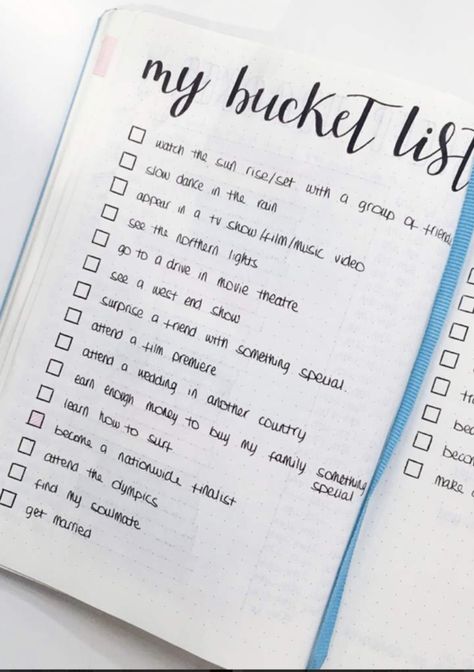 my bucket list
watch the sun rise/set with a group of friends
slow dance in the rain
appear in a tv show/film/music video
see the northern lights
go to a drive in movie theatre
see a west end show
surprise a friend with something special.
attend a film premiere
attend a wedding in another country
earn enough money to buy my family something
special
learn how to surf
become a nationwide finalist
attend the olympics
find my soulmate
get married
make